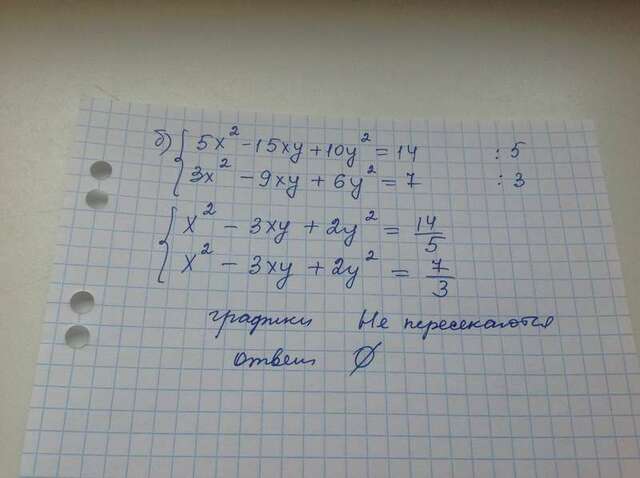 б) { 5x² - 15xy + 10y² = 14 : 5
3x² - 9xy + 6y² = 7 : 3
{ x² - 3xy + 2y² = 14/5
x² - 3xy + 2y² = 7/3
графики Не пересекаются
ответ ∅